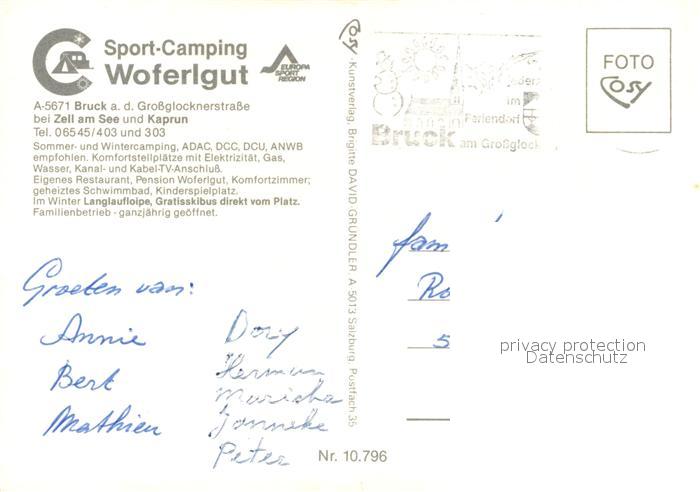 Sport-Camping
Woferlgut
EUROPA
SPORT
REGION
A-5671 Bruck a. d. Großglocknerstraße
bei Zell am See und Kaprun
Tel. 06545/403 und 303
Sommer- und Wintercamping, ADAC, DCC, DCU, ANWB
empfohlen. Komfortstellplätze mit Elektrizität, Gas,
Wasser, Kanal- und Kabel-TV-Anschluß.
Eigenes Restaurant, Pension Woferlgut, Komfortzimmer;
geheiztes Schwimmbad, Kinderspielplatz.
Im Winter Langlaufloipe, Gratisskibus direkt vom Platz.
Familienbetrieb - ganzjährig geöffnet.
Groeten van:
Annie
Bert
Mathieu
Dory
Herman
Marieke
Janneke
Peter
Cosy - Kunstverlag, Brigitte DAVID-GRÜNDLER A 5013 Salzburg, Postfach 35
Nr. 10.796
im
Feriendorf
Bruck am Großglock
FOTO
Cosy
fam
Ro
5
privacy protection
Datenschutz